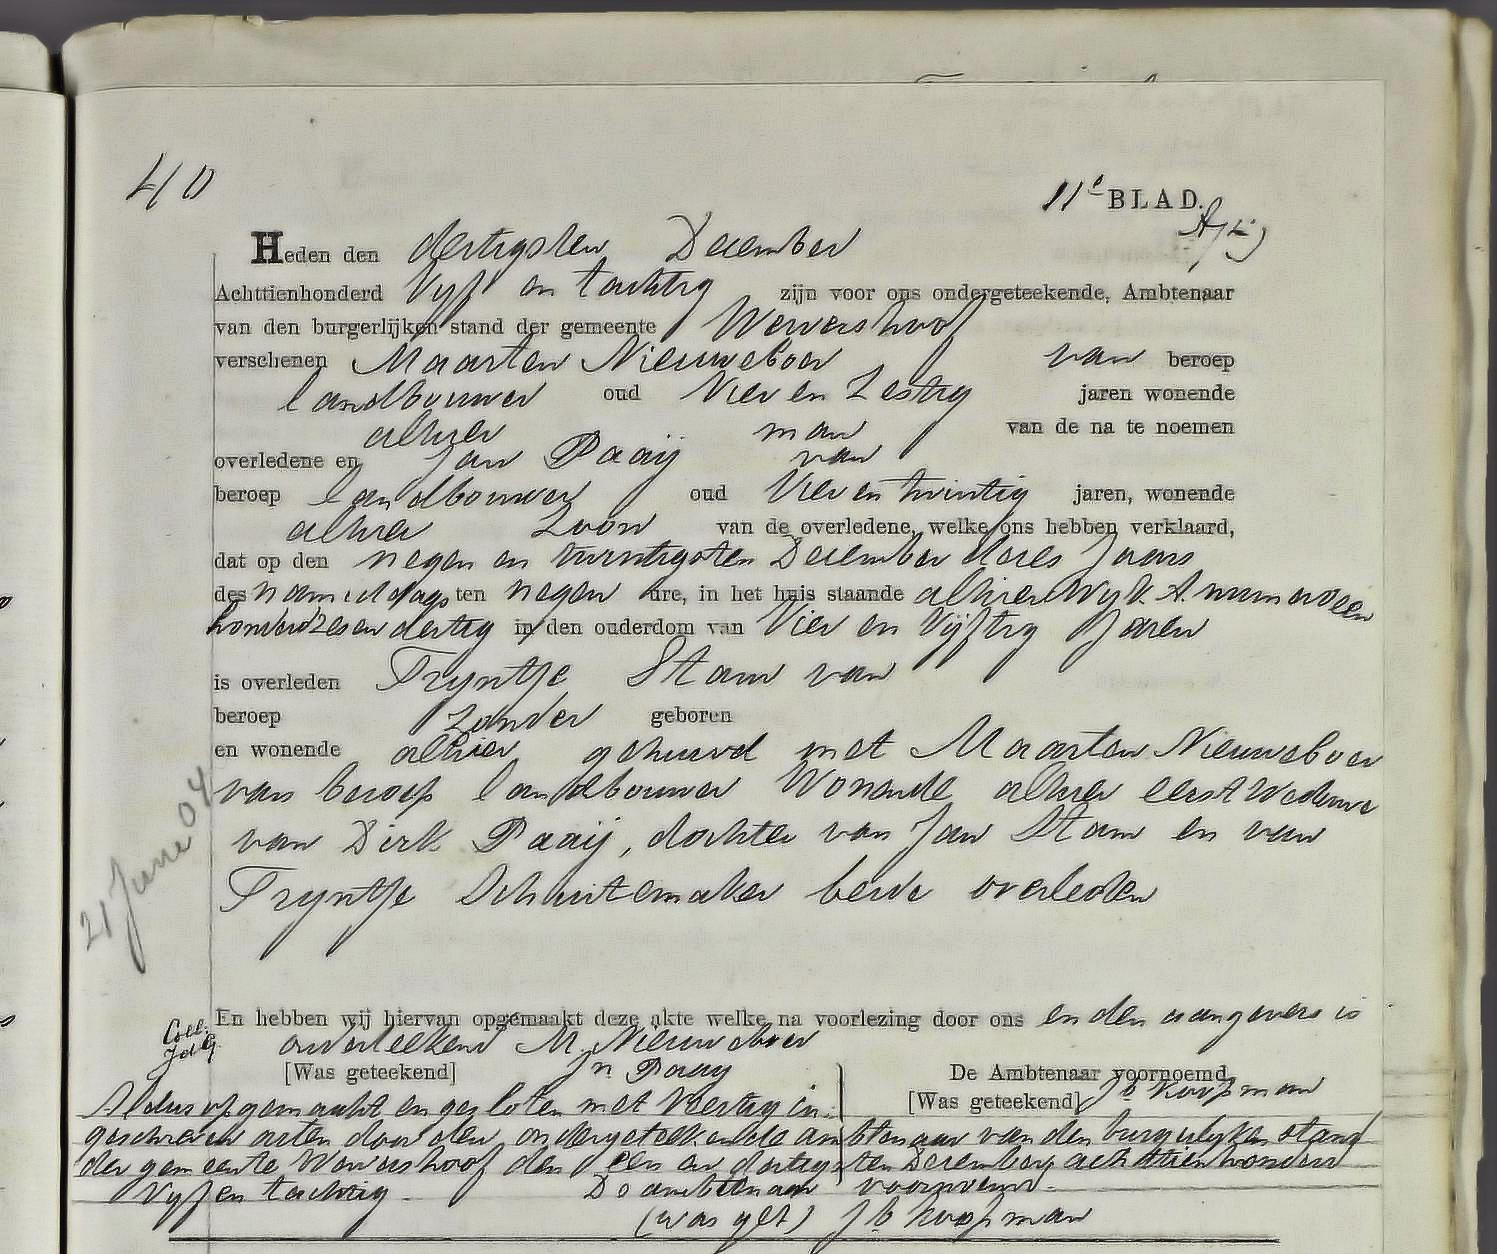 40
11e BLAD.
Heden den dertigsten December
Achttienhonderd Vyf en tachtig zijn voor ons ondergeteekende, Ambtenaar
van den burgerlijken stand der gemeente Wervershoof
verschenen Maarten Nieuweboer van beroep
landbouwer oud Vier en Zestig jaren wonende
alhier man van de na te noemen
overledene en Jan Paaij van
beroep landbouwer oud Vier en twintig jaren, wonende
alhier zoon van de overledene, welke ons hebben verklaard,
dat op den negen en twintigsten December dezes Jaars
des namiddags ten negen ure, in het huis staande alhier Wyk A. nummer een
honderd zes en dertig in den ouderdom van Vier en Vijftig Jaren
is overleden Tryntje Stam van
beroep zonder geboren
en wonende alhier gehuwd met Maarten Nieuweboer
van beroep landbouwer Wonende alhier eerst Weduwe
van Dirk Paaij, dochter van Jan Stam en van
Tryntje Schuitemaker beide overleden
21 Juni 04
En hebben wij hiervan opgemaakt deze akte welke na voorlezing door ons en den aangevers is
Coll:
onderteekend M. Nieuweboer
[Was geteekend] Jn Paaij De Ambtenaar voornoemd
[Was geteekend] Jb Koopman
Aldus opgemaakt en gesloten met Veertig in-
geschreven acten door den ondergeteekende ambtenaar van den burgerlyken stand
der gemeente Wervershoof den een en dertigsten December achttienhonderd
Vyf en tachtig. De ambtenaar voornoemd.
(was get) Jb Koopman